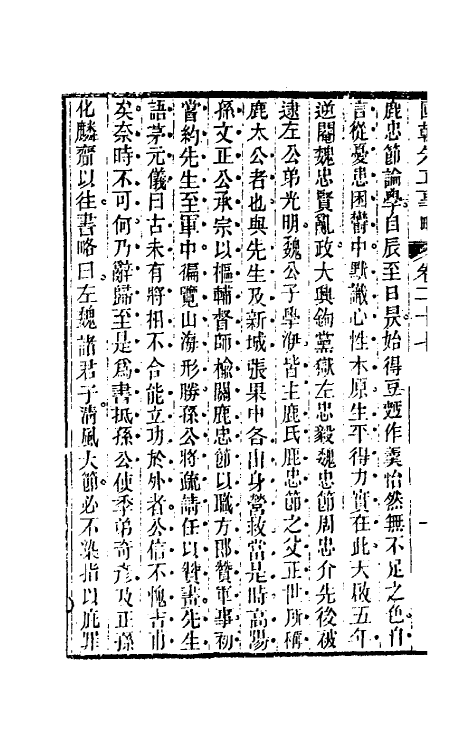 鹿忠節論學自辰至日昃始得豆麪作羹怡然無不足之色自
言從憂患困鬱中默識心性本原生平得力實在此天啟五年
逆閹魏忠賢亂政大興鉤黨獄左忠毅魏忠節周忠介先後被
逮左公弟光明魏公子學洢皆主鹿氏鹿忠節之父正世所稱
鹿太公者也與先生及新城張果中各出身營救當是時高陽
孫文正公承宗以樞輔督師榆關鹿忠節以職方郎贊軍事初
嘗約先生至軍中徧覽山海形勝孫公將疏請任以贊畫先生
語茅元儀曰古未有將相不合能立功於外者公信不愧吉甫
矣奈時不可何乃辭歸至是爲書抵孫公使季弟奇彥及正孫
化麟齎以往書略曰左魏諸君子清風大節必不染指以庇罪